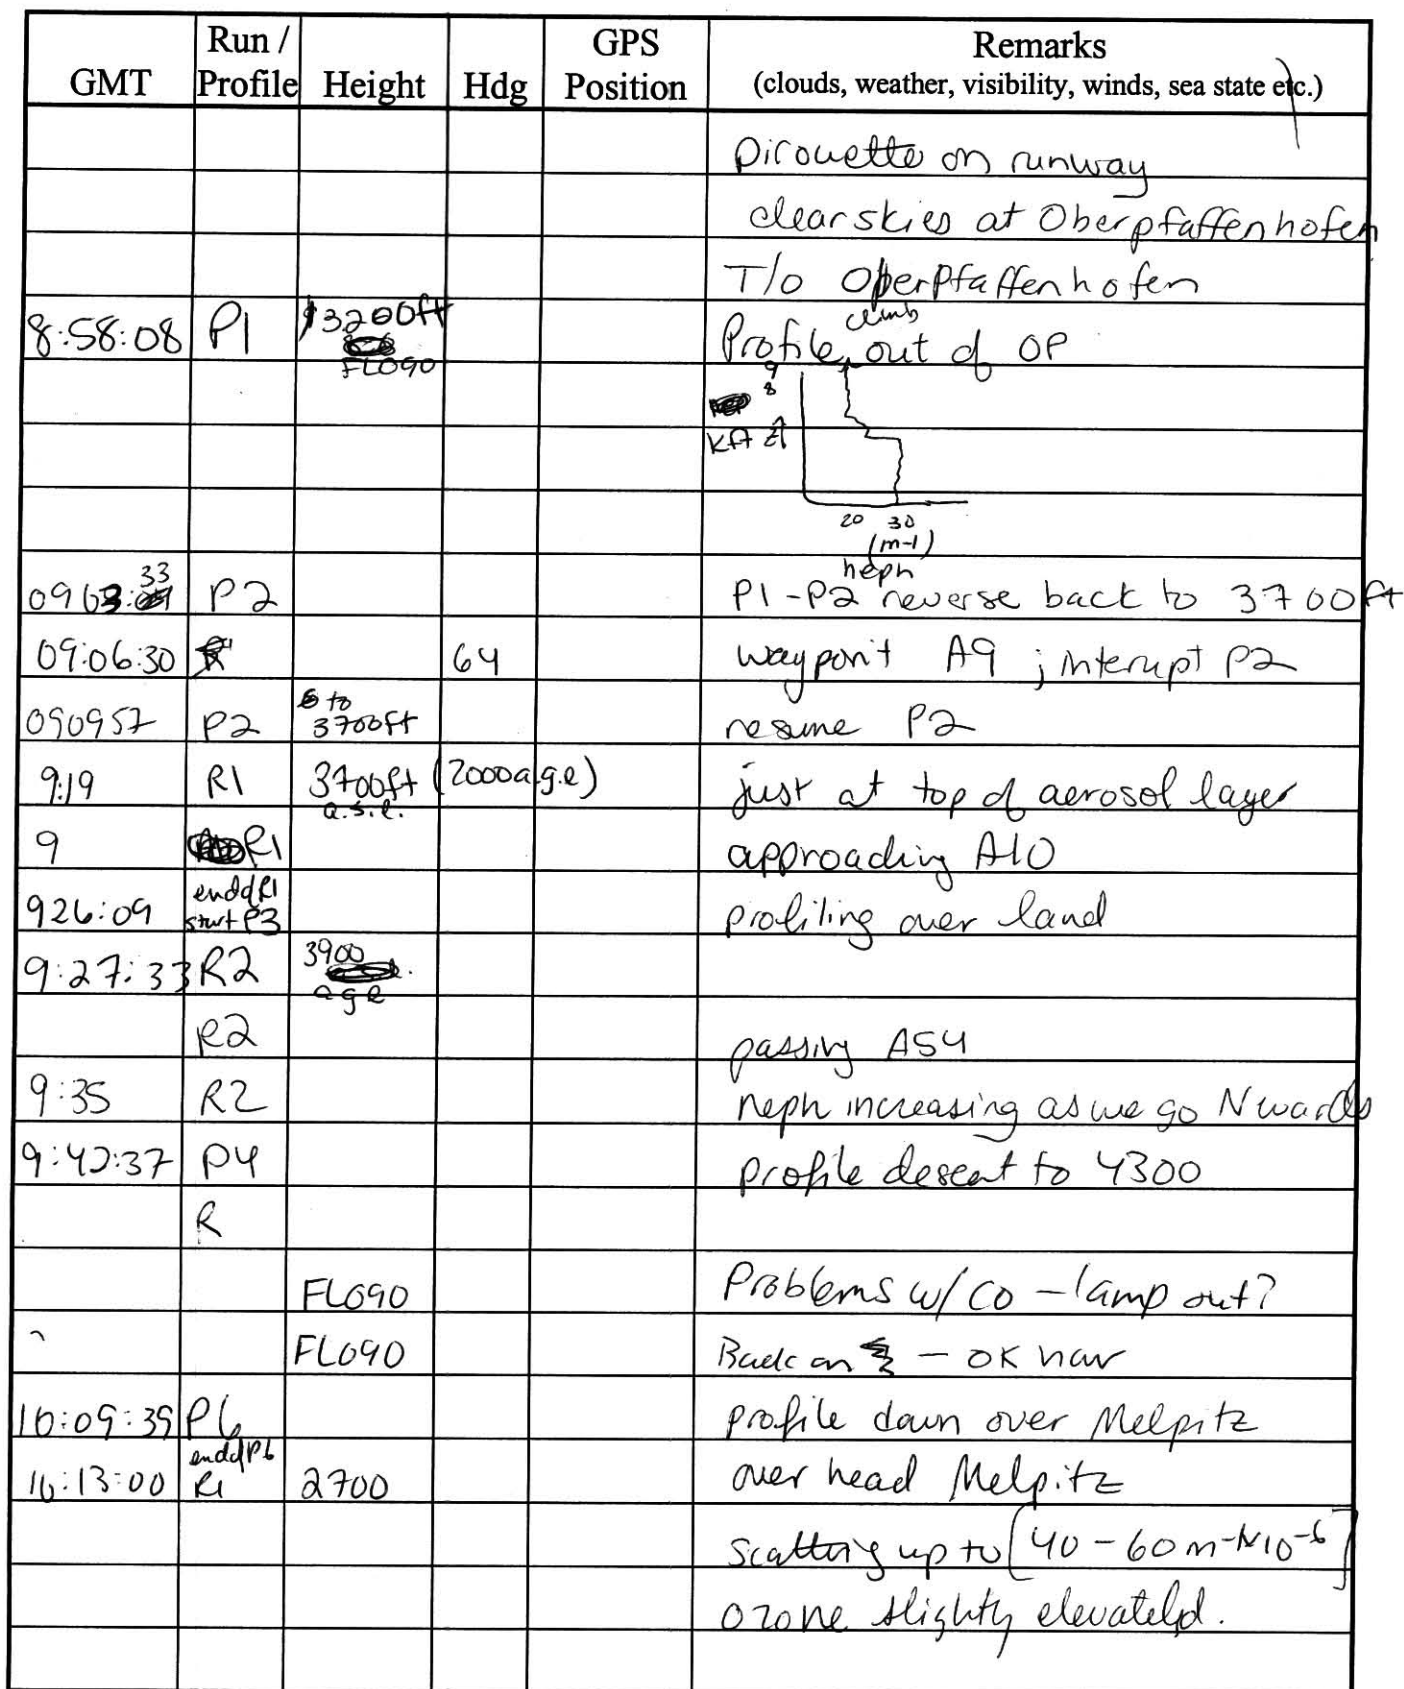 GMT Run / Profile Height Hdg GPS Position Remarks
(clouds, weather, visibility, winds, sea state etc.)
Pirouette on runway
clear skies at Oberpfaffenhofen
T/O Oberpfaffenhofen
8:58:08 P1 3200ft FL090 Profile climb out of OP
9
8
kft z
20 30
(m-1)
neph
0903:33 P2 P1-P2 reverse back to 3700ft
09:06:30 64 waypoint A9 ; interupt P2
090957 P2 to 3700ft resume P2
9:19 R1 3700ft a.s.l. (2000 a.g.l) just at top of aerosol layer
9 R1 approaching A10
926:09 end of R1 start P3 profiling over land
9:27:33 R2 3900 agl
R2 passing A54
9:35 R2 neph increasing as we go Nwards
9:42:37 P4 profile descent to 4300
R
FL090 Problems w/ CO - lamp out?
FL090 Back on - OK now
10:09:39 P6 profile down over Melpitz
10:13:00 end of P6 R1 2700 over head Melpitz
scattering up to [40-60 m-1x10-6]
ozone slightly elevated.